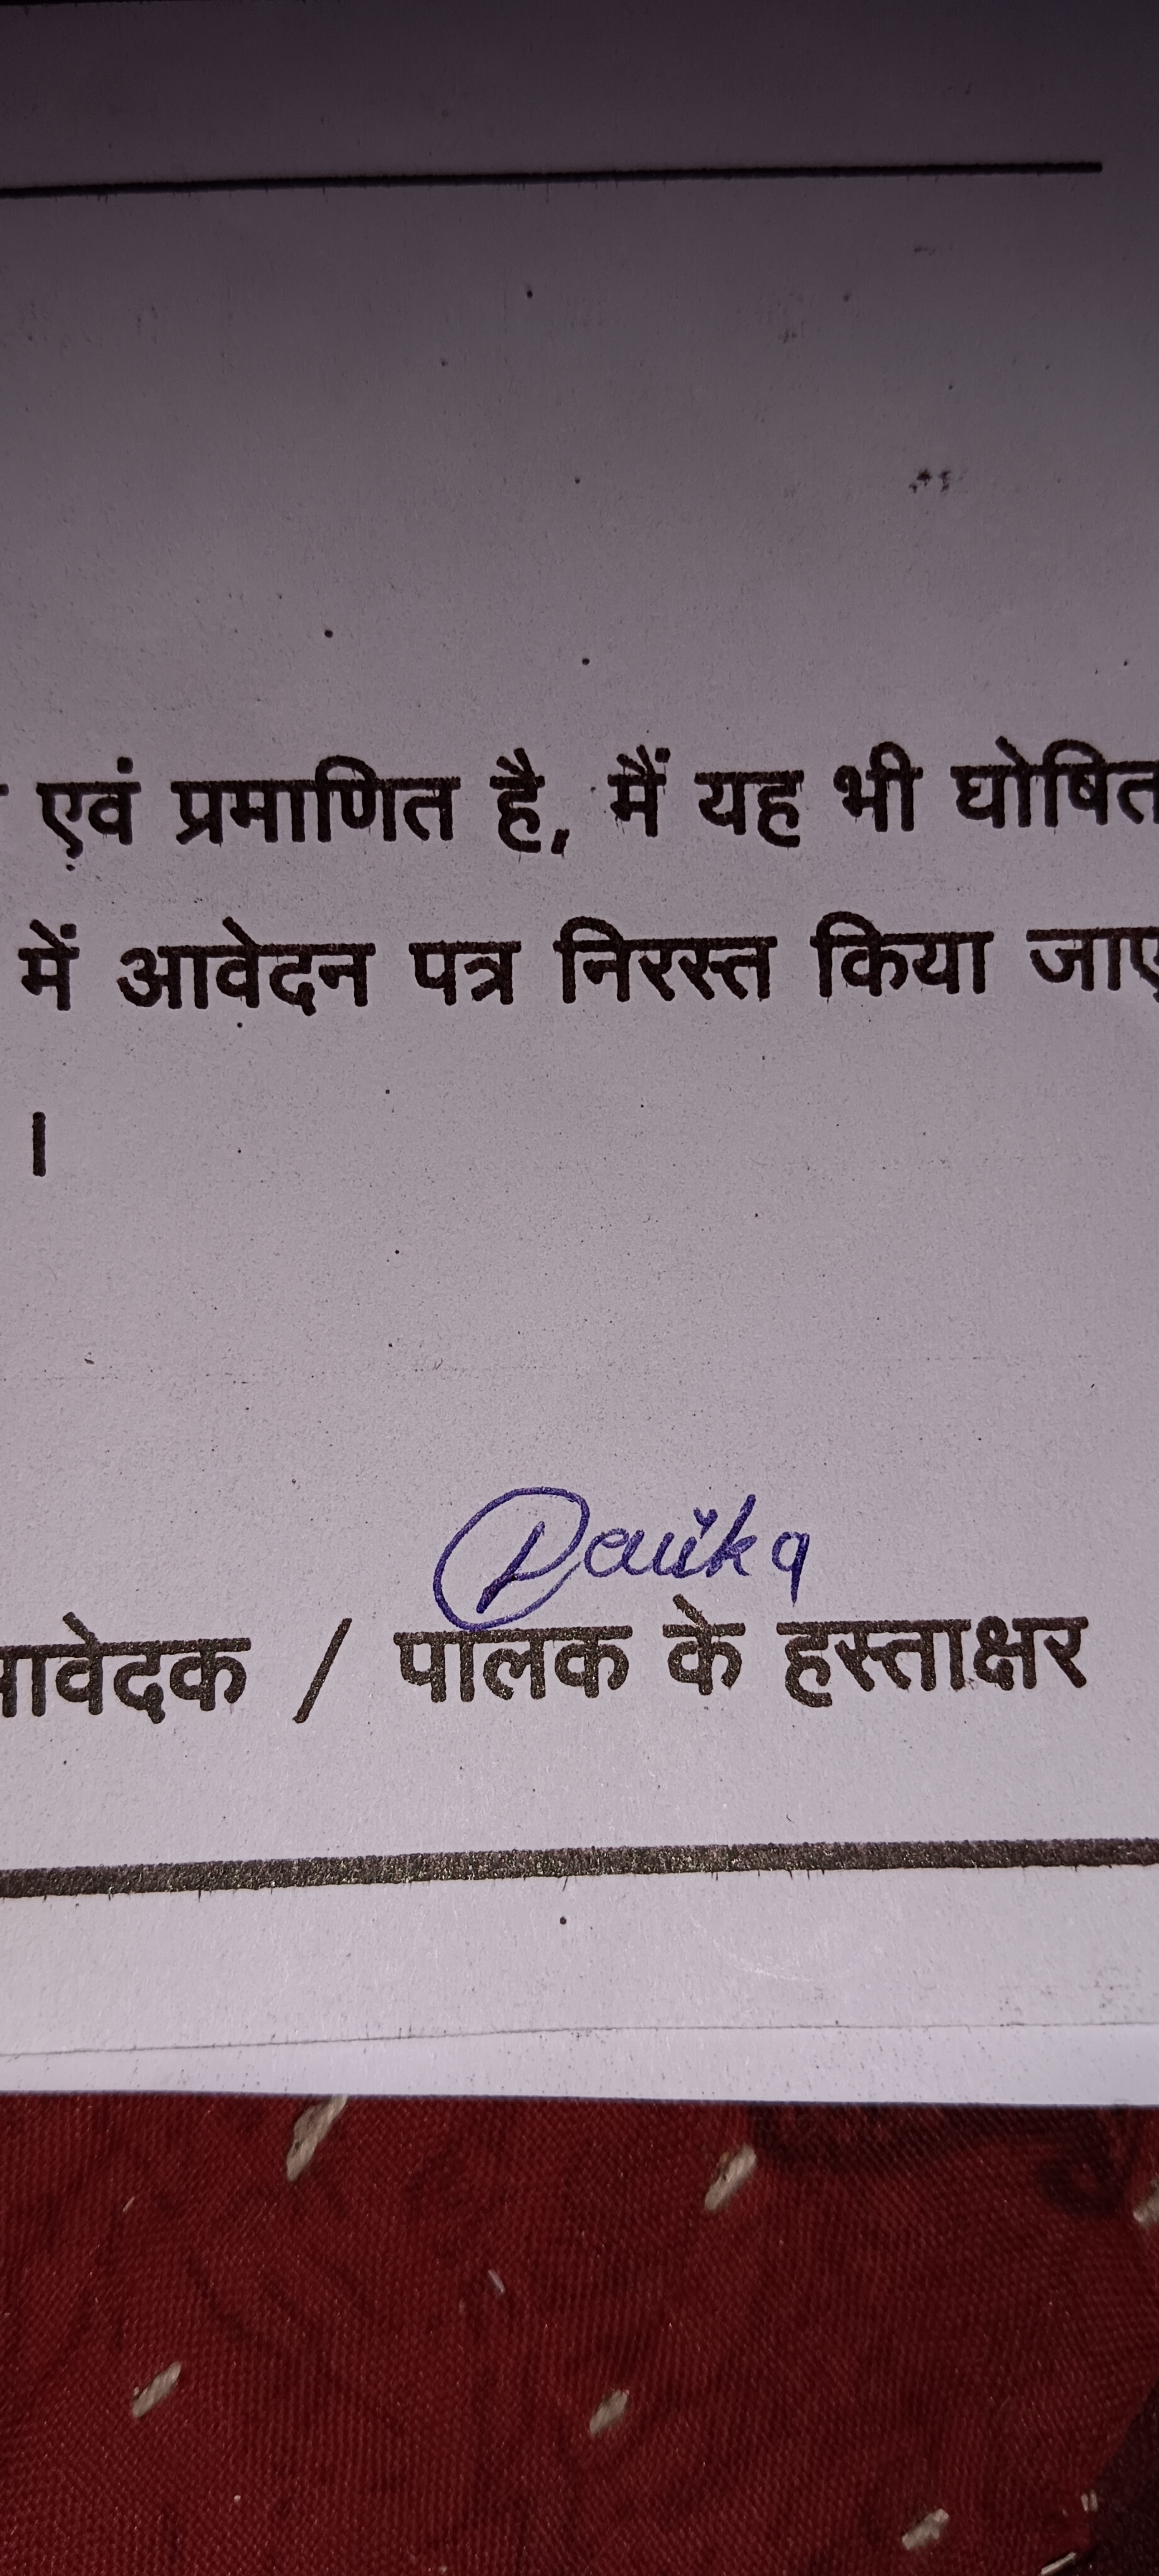 एवं प्रमाणित है, मैं यह भी घोषित
में आवेदन पत्र निरस्त किया जाए
।
आवेदक / पालक के हस्ताक्षर